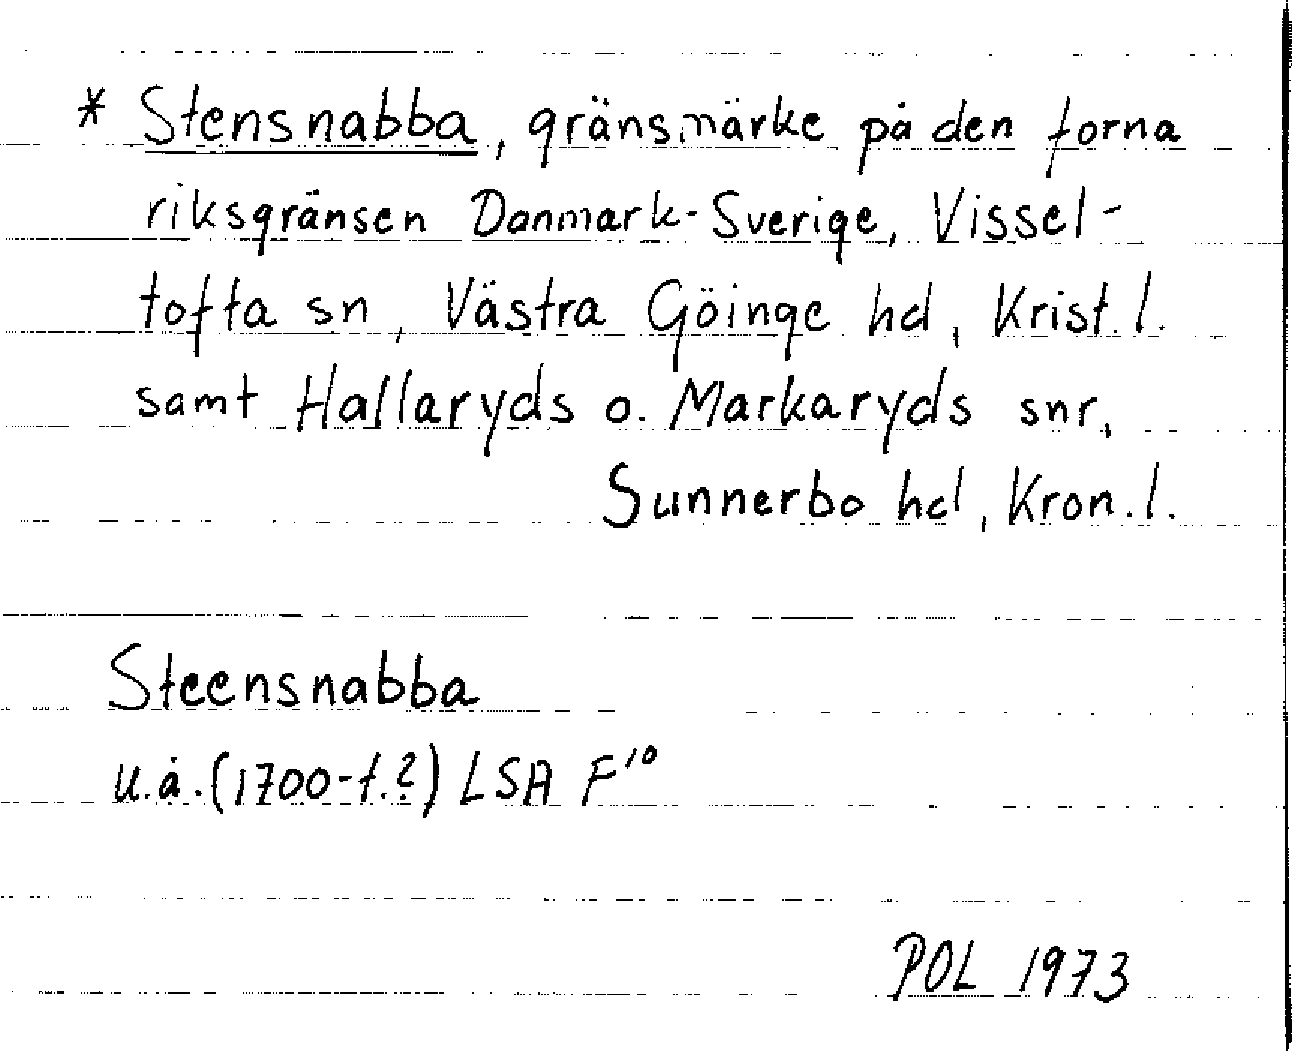 * Stensnabba, gränsmärke på den forna
riksgränsen Danmark-Sverige, Vissel-
tofta sn, Västra Göinge hd, Krist. l.
samt Hallaryds o. Markaryds snr,
Sunnerbo hd, Kron. l.
Steensnabba
u.å. (1700-t.?) LSA F¹⁰
POL 1973